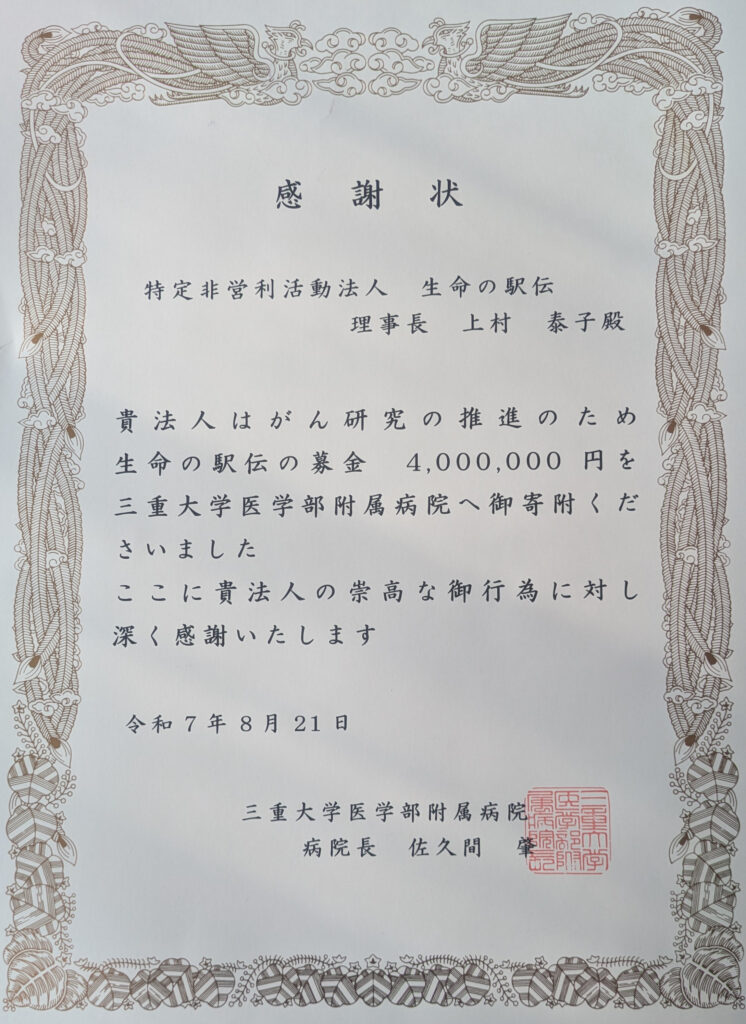 感謝状
特定非営利活動法人　生命の駅伝
理事長　上村　泰子殿
貴法人はがん研究の推進のため
生命の駅伝の募金　4,000,000 円を
三重大学医学部附属病院へ御寄附くだ
さいました
ここに貴法人の崇高な御行為に対し
深く感謝いたします
令和 7 年 8 月 21 日
三重大学医学部附属病院
病院長　佐久間　肇